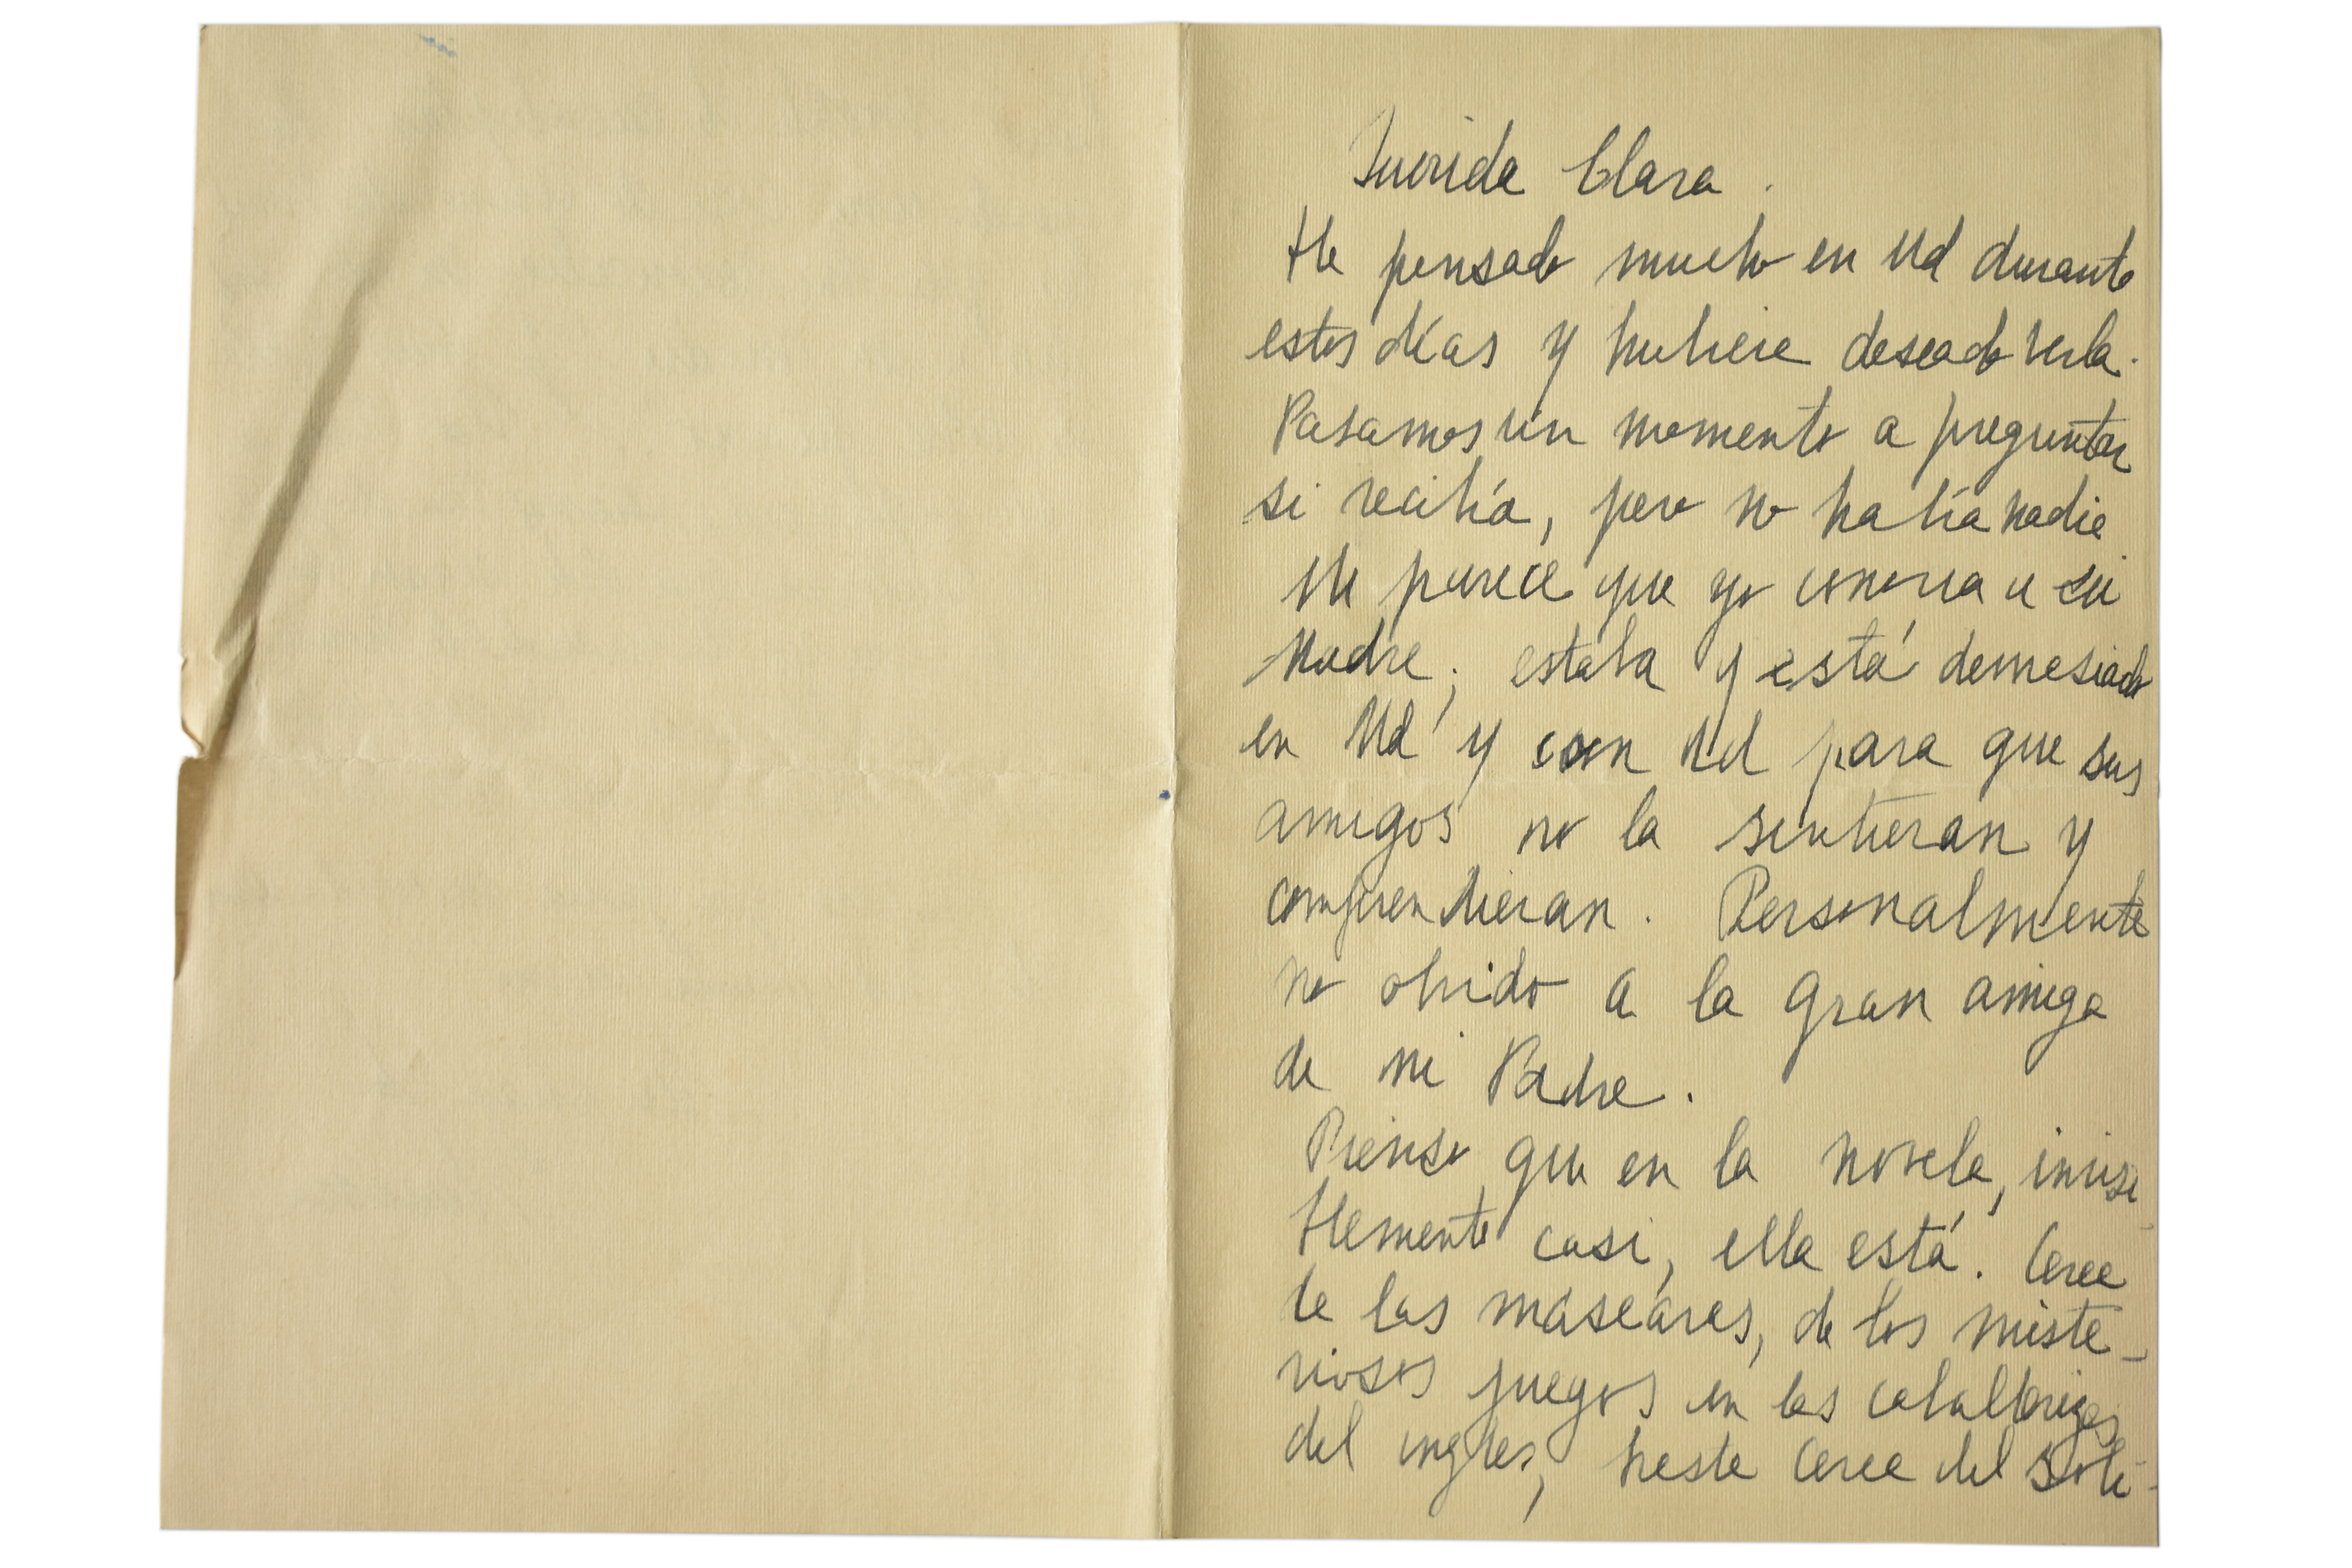 Querida Clara.
He pensado mucho en Ud durante
estos días y hubiera deseado verla.
Pasamos un momento a preguntar
si recibía, pero no había nadie.
Me parece que yo conocía a su
Madre; estaba y está demasiado
en Ud y con Ud para que sus
amigos no la sintieran y
comprendieran. Personalmente
no olvido a la gran amiga
de mi Padre.
Pienso que en la novela, invisi-
blemente casi, ella está. Cerca
de las máscaras, de los miste-
riosos juegos en las
del inglés, hasta cerca del soli-